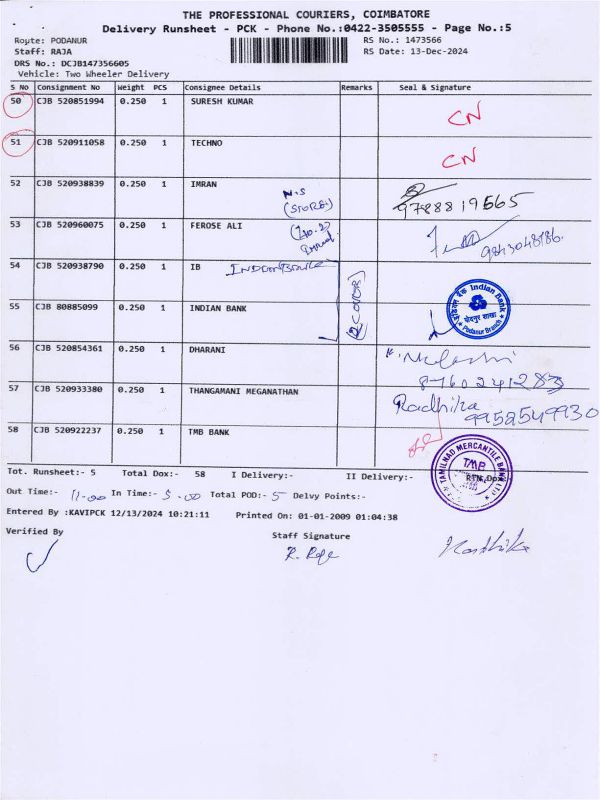 THE PROFESSIONAL COURIERS, COIMBATORE
Delivery Runsheet - PCK - Phone No.:0422-3505555 - Page No.:5
Route: PODANUR
RS No.: 1473566
Staff: RAJA
RS Date: 13-Dec-2024
DRS No.: DCJB147356605
Vehicle: Two Wheeler Delivery
S No Consignment No Weight PCS Consignee Details Remarks Seal & Signature
50 CJB 520851994 0.250 1 SURESH KUMAR CN
51 CJB 520911058 0.250 1 TECHNO CN
52 CJB 520938839 0.250 1 IMRAN N.S
(STORE) 9788819565
53 CJB 520960075 0.250 1 FEROSE ALI
9843048186
54 CJB 520938790 0.250 1 IB
(2 COVER)
55 CJB 80885099 0.250 1 INDIAN BANK
Indian Bank
इंडियन बैंक
पोदनूर शाखा
Podanur Branch
56 CJB 520854361 0.250 1 DHARANI
8760241283
57 CJB 520933380 0.250 1 THANGAMANI MEGANATHAN Radhika
9952549930
58 CJB 520922237 0.250 1 TMB BANK
TAMILNAD MERCANTILE BANK LTD
TMB
Tot. Runsheet:- 5 Total Dox:- 58 I Delivery:- II Delivery:- RTN Dox
Out Time:- 11-00 In Time:- 5-00 Total POD:- 5 Delvy Points:-
Entered By :KAVIPCK 12/13/2024 10:21:11 Printed On: 01-01-2009 01:04:38
Verified By
Staff Signature
R. Raja
Karthika